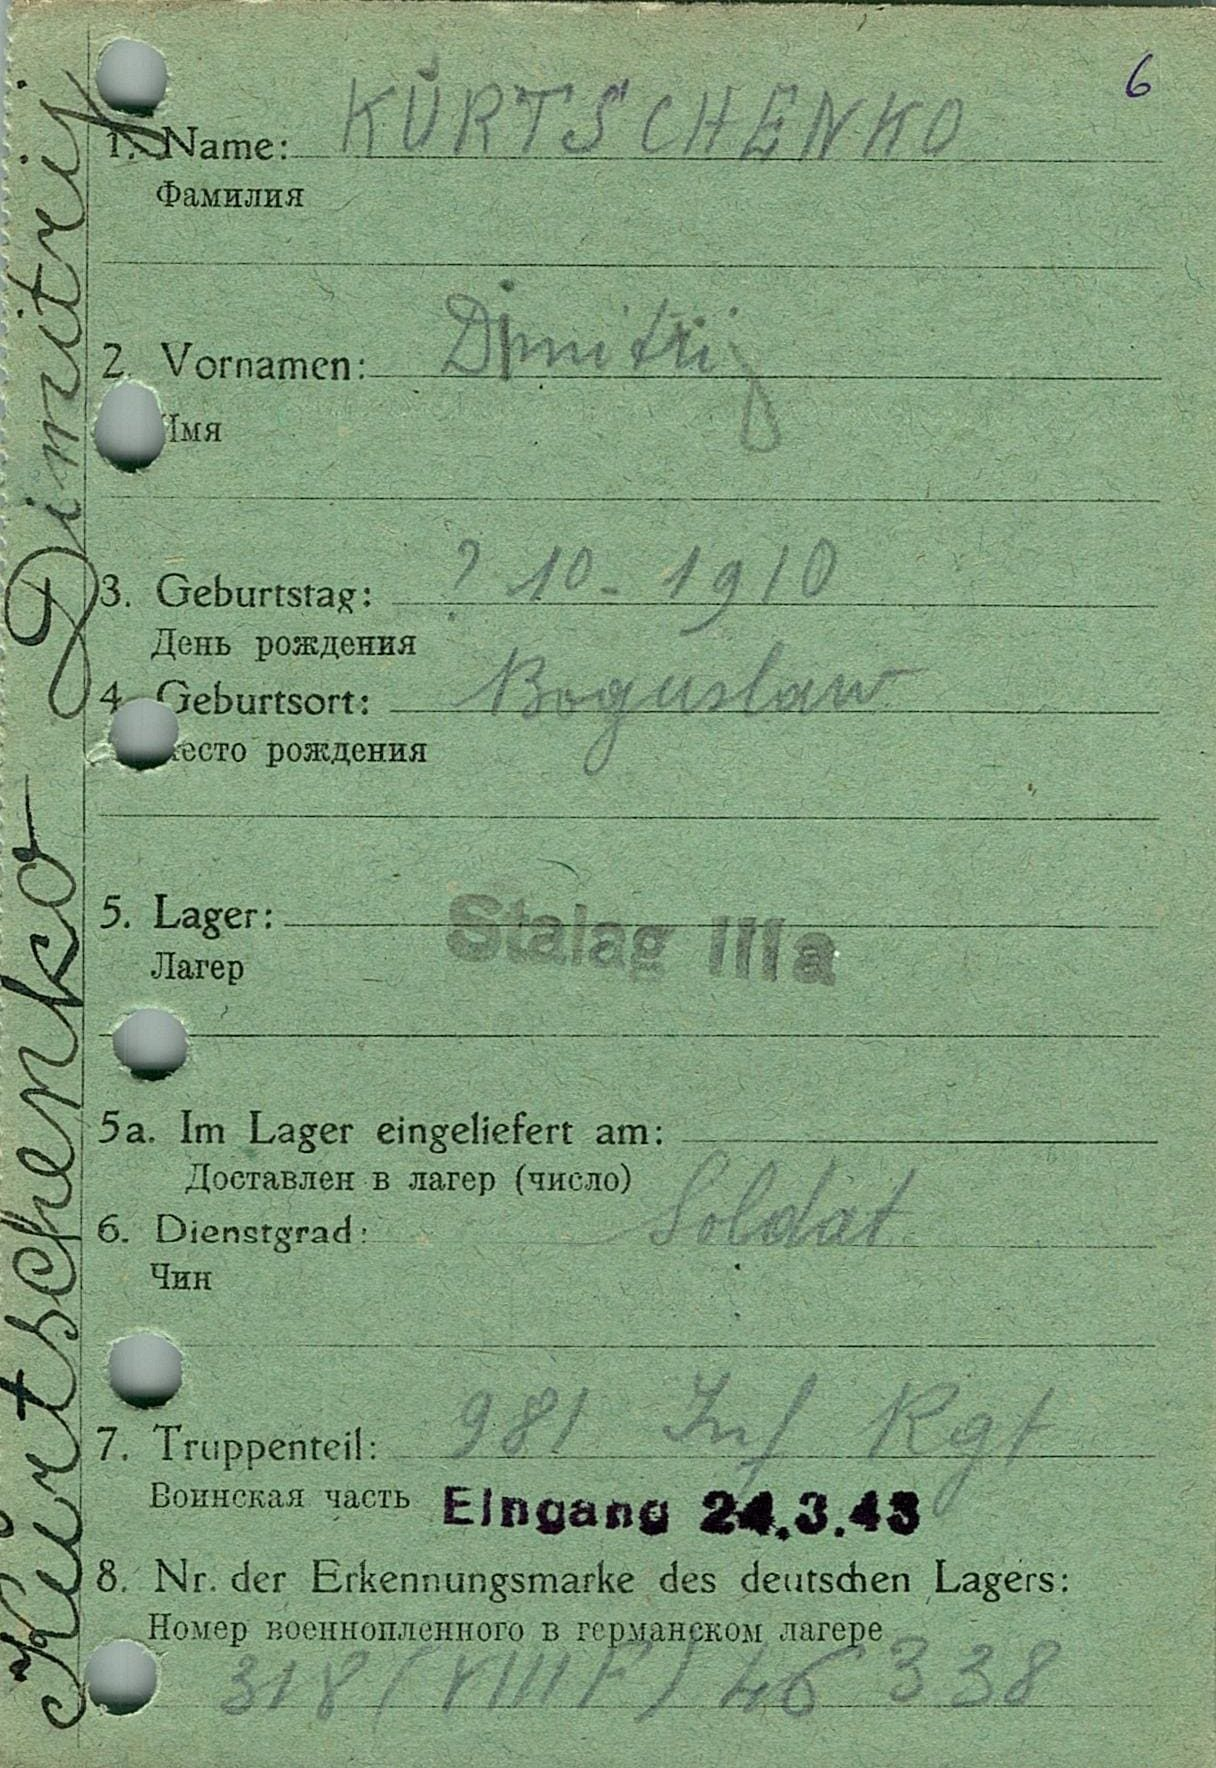 6
1. Name: KURTSCHENKO
Фамилия
2. Vornamen: Dimitrij
Имя
3. Geburtstag: ? 10 - 1910
День рождения
4. Geburtsort: Boguslaw
Место рождения
5. Lager: Stalag IIIa
Лагер
5a. Im Lager eingeliefert am:
Доставлен в лагер (число)
6. Dienstgrad: Soldat
Чин
7. Truppenteil: 981 Inf Rgt
Воинская часть Eingang 24.3.43
8. Nr. der Erkennungsmarke des deutschen Lagers:
Номер военнопленного в германском лагере
318 (VIII F) 46338
Kurtschenko Dimitrij